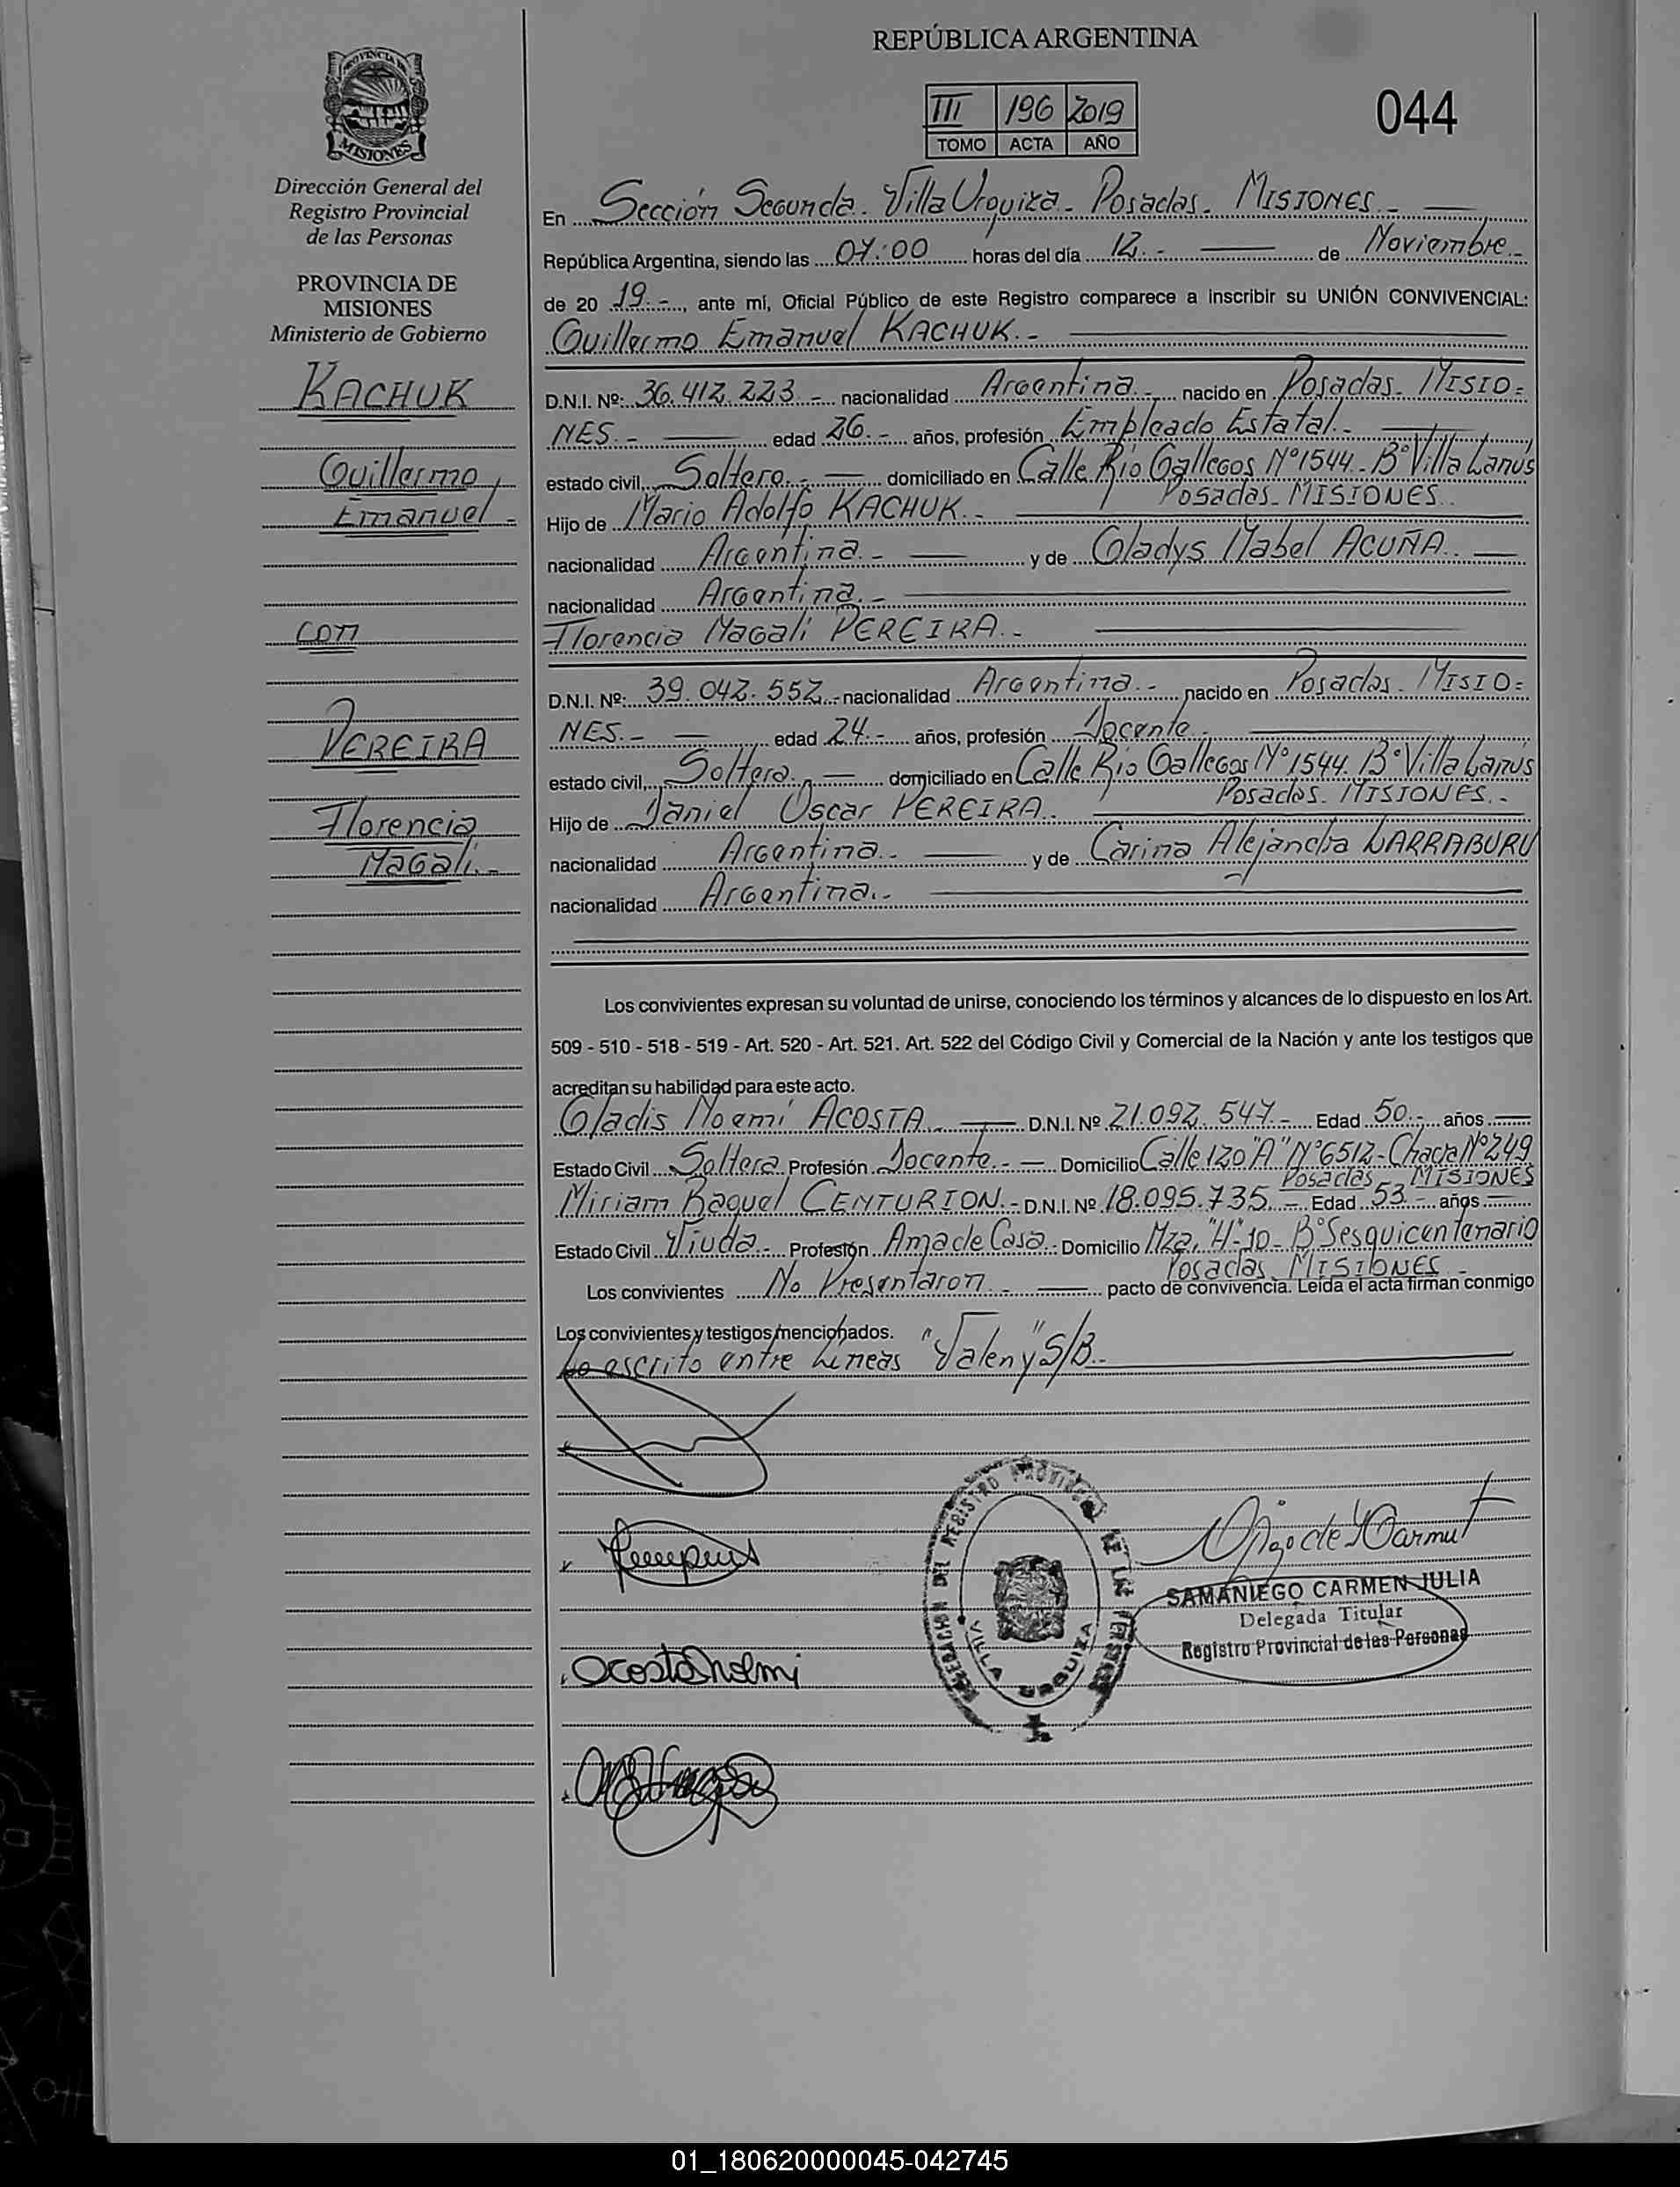 REPÚBLICA ARGENTINA
PROVINCIA DE
MISIONES
III 196 2019
TOMO ACTA AÑO
044
Dirección General del
Registro Provincial
de las Personas
PROVINCIA DE
MISIONES
Ministerio de Gobierno
KACHUK
Guillermo
Emanuel.-
con
PEREIRA
Florencia
Magalí.-
En Sección Segunda. Villa Urquiza. Posadas. MISIONES.-
República Argentina, siendo las 07:00 horas del día 12.- de Noviembre.-
de 20 19.-, ante mí, Oficial Público de este Registro comparece a inscribir su UNIÓN CONVIVENCIAL:
Guillermo Emanuel KACHUK.-
D.N.I. Nº: 36.412.223.- nacionalidad Argentina.- nacido en Posadas. MISIO=
NES.- edad 26.- años, profesión Empleado Estatal.-
estado civil, Soltero.- domiciliado en Calle Río Gallegos Nº 1544. Bº Villa Lanús
Posadas. MISIONES.
Hijo de Mario Adolfo KACHUK.-
nacionalidad Argentina.- y de Gladys Mabel ACUÑA.
nacionalidad Argentina.-
Florencia Magalí PEREIRA.-
D.N.I. Nº: 39.042.552.- nacionalidad Argentina.- nacido en Posadas. MISIO=
NES.- edad 24.- años, profesión Docente.-
estado civil, Soltera.- domiciliado en Calle Río Gallegos Nº 1544. Bº Villa Lanús
Posadas. MISIONES.-
Hijo de Daniel Oscar PEREIRA.
nacionalidad Argentina.- y de Carina Alejandra LARRABURU
nacionalidad Argentina.-
Los convivientes expresan su voluntad de unirse, conociendo los términos y alcances de lo dispuesto en los Art.
509 - 510 - 518 - 519 - Art. 520 - Art. 521. Art. 522 del Código Civil y Comercial de la Nación y ante los testigos que
acreditan su habilidad para este acto.
Gladis Noemí ACOSTA.- D.N.I. Nº 21.092.547.- Edad 50.- años
Estado Civil Soltera Profesión Docente.- Domicilio Calle 120 "A" Nº 6512 - Chacra Nº 249
Posadas MISIONES
Miriam Raquel CENTURION.- D.N.I. Nº 18.095.735.- Edad 53.- años
Estado Civil Viuda.- Profesión Ama de Casa.- Domicilio Mza. "H"-10- Bº Sesquicentenario
Posadas MISIONES.-
Los convivientes No Presentaron.- pacto de convivencia. Leída el acta firman conmigo
Los convivientes y testigos mencionados.
Lo escrito entre Líneas "Valen y" S/B.-
Acosta Noemi
REGISTRO PROVINCIAL DE LAS PERSONAS
VILLA URQUIZA
SAMANIEGO CARMEN JULIA
Delegada Titular
Registro Provincial de las Personas
01_180620000045-042745